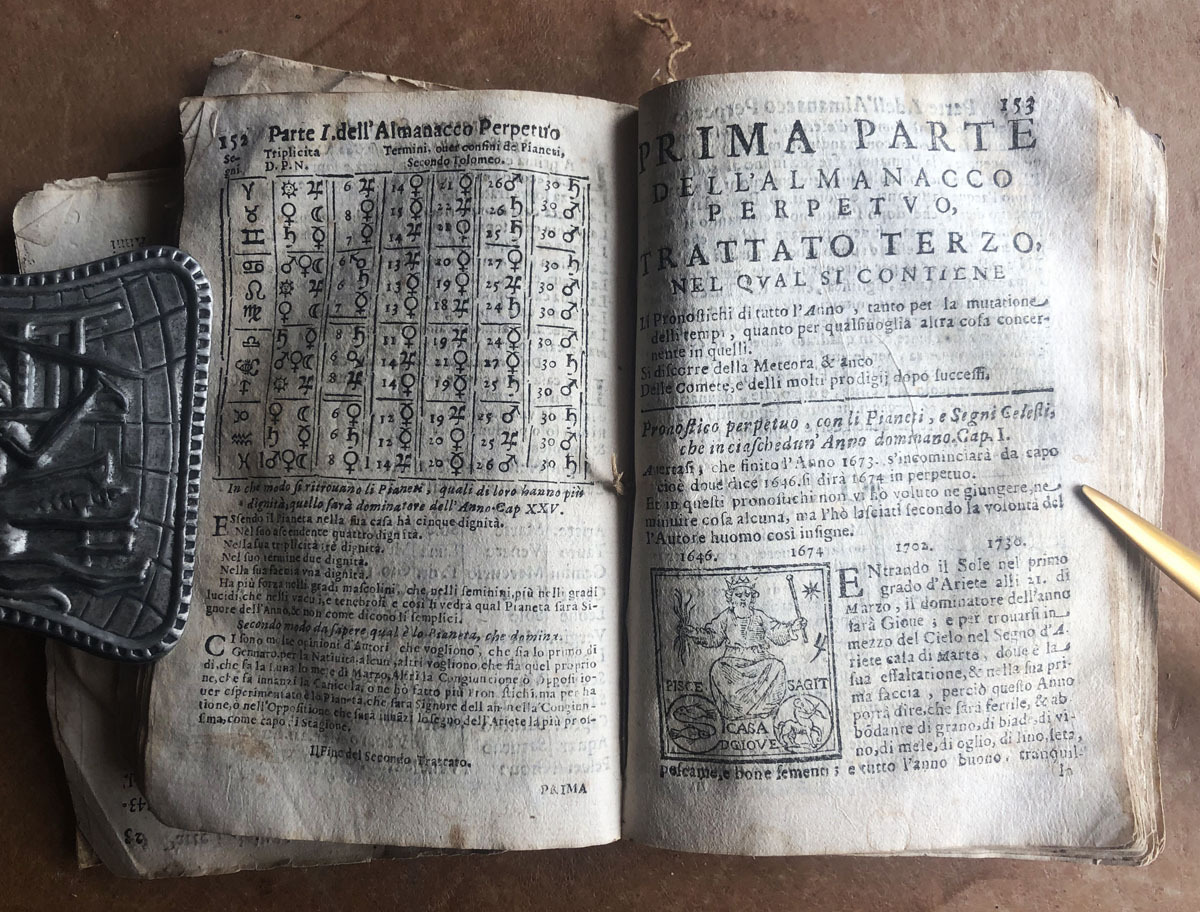 152 Parte I. dell'Almanacco Perpetuo
Se-
gni.
Triplicita
D. P. N.
Termini, ouer confini de Pianeti,
Secondo Tolomeo.
♈ ☼ ♃ 6 ♃ 14 ♀ 21 ☿ 26 ♂ 30 ♄
♉ ♀ ☾ 8 15 22 ♃ 26 ♄ 30 ♂
♊ ♄ ☿ 7 14 25 30 ♂
♋ ♂♀☾ 6 13 20 27 30 ♄
♌ ☼ ♃ 6 13 19 25 30 ♂
♍ ♀ ☾ 7 13 18 24 ♄ 30 ♂
♎ ♄ ☿ 8 ♄ 11 19 24 30 ♂
♏ ♂♀☾ 6 14 21 27 30 ♄
♐ ☼ ♃ 8 ♃ 14 19 25 ♄ 30 ♂
♑ ♀ ☾ 6 12 19 ♃ 25 ♂ 30 ♄
♒ ♄ ☿ 6 ♄ 12 20 25 ♃ 30 ♂
♓ ♂♀☾ 8 ♀ 14 ♃ 20 26 ♂ 30 ♄
In che modo si ritrouano li Pianeti, quali di loro hanno più
dignità, quello sarà dominatore dell'Anno. Cap XXV.
ESsendo il Pianeta nella sua casa hà cinque dignità.
Nel suo ascendente quattro dignità.
Nella sua triplicità tre dignità.
Nel suo termine due dignità.
Nella sua faccia vna dignità.
Ha più forza nelli gradi mascolini, che nelli feminini, più nelli gradi
lucidi, che nelli vacui, e tenebrosi e così si vedrà qual Pianeta sarà Si-
gnore dell'Anno, & non come dicono li semplici.
Secondo modo da sapere qual è lo Pianeta, che domina.
CI sono molte opinioni d'Autori che vogliono, che sia lo primo di
Gennaro, per la Natiuità alcuni, altri vogliono, che sia quel proprio
di, che fa la Luna lo mese di Marzo, Altri la Congiuncione ò Opposi io-
ne, che fa innanzi la Canicola, o ne hò fatto più Pronostichi, ma per ha
uer esperimentato è lo Pianeta, che sara Signore dell'anno nella Congiun-
tione, ò nell'Oppositione, che sarà innãzi lo segno dell'Ariete la più pros-
sima, come capo di Stagione.
Il Fine del Secondo Trattato.
PRIMA
153
PRIMA PARTE
DELL'ALMANACCO
PERPETVO,
TRATTATO TERZO,
NEL QVAL SI CONTIENE
Li Pronostichi di tutto l'Anno, tanto per la mutatione
delli tempi, quanto per qualsiuoglia altra cosa concer-
nente in quelli.
Si discorre della Meteora, & anco
Delle Comete, e delli molti prodigij dopo successi.
Pronostico perpetuo, con li Pianeti, e Segni Celesti,
che in ciaschedun' Anno dominano. Cap. I.
Auertasi, che finito l'Anno 1673. s'incominciarà da capo
cioè doue dice 1646. si dirà 1674 in perpetuo.
Et in questi pronostichi non vi hò voluto ne giungere, ne
minuire cosa alcuna, ma l'hò lasciati secondo la volontà del
l'Autore huomo così insigne.
1646. 1674 1702. 1730.
PISCE SAGIT
CASA
D GIOVE
ENtrando il Sole nel primo
grado d'Ariete alli 21. di
Marzo, il dominatore dell'anno
sarà Gioue; e per trouarsi in
mezzo del Cielo nel Segno d'A-
riete casa di Marte, doue è la
sua essaltatione, & nella sua pri-
ma faccia, perciò questo Anno
potrà dire, che sarà fertile, & ab
bodante di grano, di biade, di vi-
no, di mele, di oglio, di lino, seta,
pescame, e bone sementi; e tutto l'anno buono, tranquil-
lo